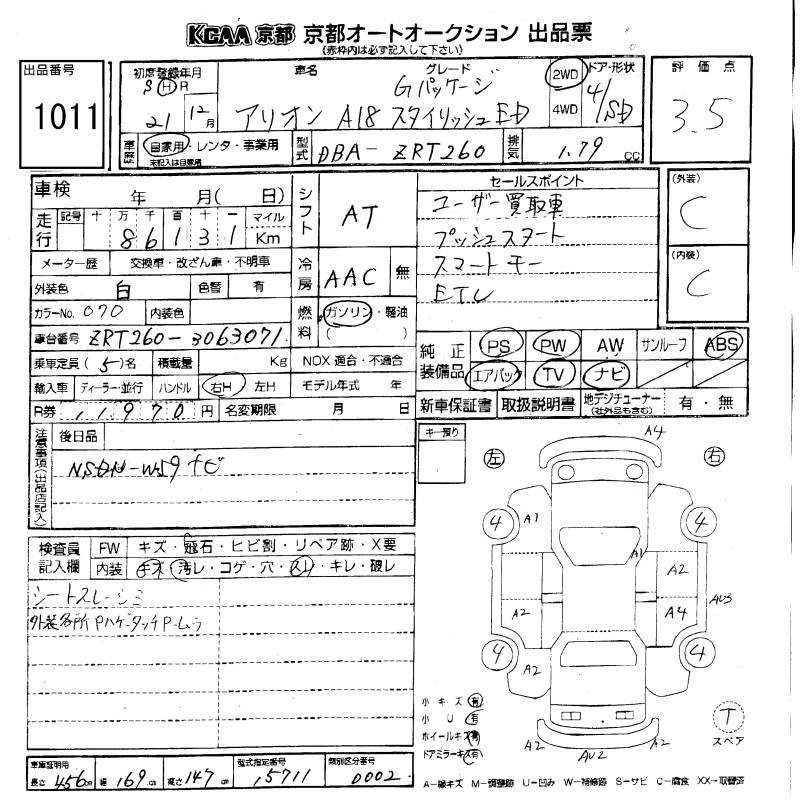 KCAA 京都 京都オートオークション 出品票
(赤枠内は必ず記入して下さい)
出品番号
1011
初度登録年月
S H R
21 12月
車名
グレード
Gパッケージ
アリオン A18 スタイリッシュED
2WD
4WD
ドア・形状
4/SD
評価点
3.5
車歴
自家用・レンタ・事業用
未記入は自家用
型式
DBA-ZRT260
排気
1.79 cc
車検
年 月( 日)
シフト
AT
セールスポイント
ユーザー買取車
プッシュスタート
スマートキー
(外装)
C
(内装)
C
走行
記号 十 万 千 百 十 一 マイル
8 6 1 3 1 Km
メーター歴
交換車・改ざん車・不明車
冷房
AAC 無
外装色
白
色替
有
カラーNo. 070
内装色
燃料
ガソリン・軽油
( )
車台番号
ZRT260-3063071
乗車定員 (5)名
積載量
Kg
NOX 適合・不適合
輸入車
ディーラー・並行
ハンドル
右H 左H
モデル年式 年
R券 11970円
名変期限
月 日
純正装備品
PS PW AW サンルーフ ABS
エアバック TV ナビ
新車保証書
取扱説明書
地デジチューナー
(社外品も含む)
有・無
注意事項(出品店記入)
後日品
NSDN-W59ナビ
キー預り
左
右
A4
4
4
A1
A1
A2
A2
A4
AU3
4
4
A2
A2
AU2
A2
検査員記入欄
FW
キズ・飛石・ヒビ割・リペア跡・X要
内装
キズ・汚レ・コゲ・穴・スレ・キレ・破レ
シートスレ・シミ
外装各所Pハゲ・タッチP・ムラ
小キズ 有
小U 有
ホイールキズ 有
ドアミラーキズ(有)
T
スペア
車庫証明用
長さ 456cm
幅 169cm
高さ 147cm
型式指定番号
15711
類別区分番号
0002
A−線キズ M−調整跡 U−凹み W−補修跡 S−サビ C−腐食 XX→取替済